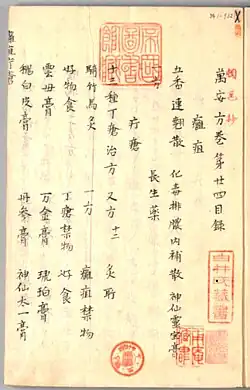 萬安方巻第廿四目録
癰疽
五香連翹散 化毒排膿内補散 神仙靈寶膏
長生藥
疔瘡
十三種丁瘡治方 又方十二 灸所
騎竹馬灸 一方 癰疽禁物
好物食 丁瘡禁物 好食
雲母膏 万金膏 琥珀膏
丹參膏 神仙太一膏
白井氏蔵書